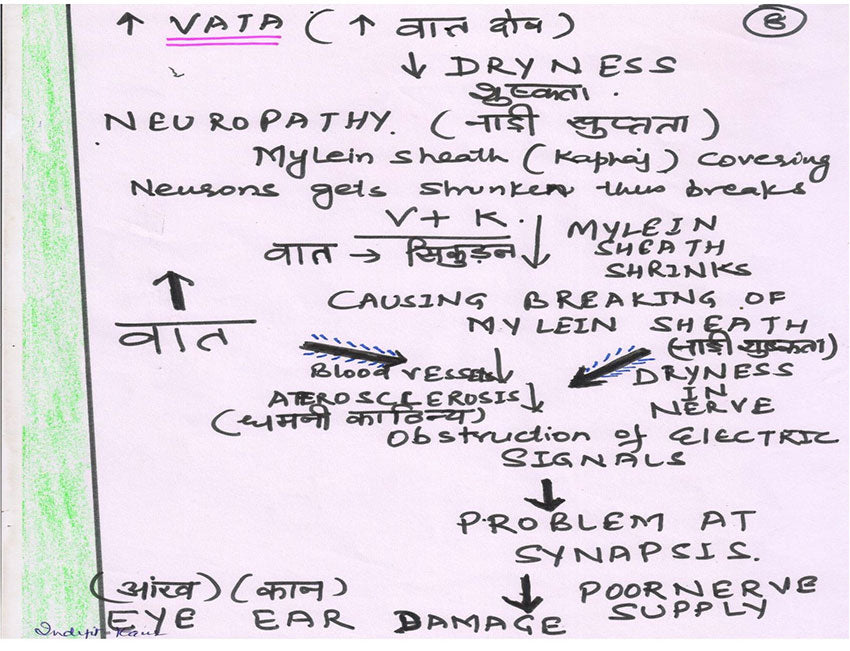 ↑ VATA (↑ वात दोष) ⑧
↓ DRYNESS
शुष्कता.
NEUROPATHY. (नाड़ी सुप्तता)
Mylein sheath (Kaphaj) covering
Neurons gets shrunken thus breaks
V + K.
वात → सिकुड़न ↓ MYLEIN
SHEATH
SHRINKS
↑
वात
CAUSING BREAKING OF
MYLEIN SHEATH
(नाड़ी शुष्कता)
Blood vessels ↓ DRYNESS
IN
NERVE
ATEROSCLEROSIS ↓
(धमनी काठिन्य)
Obstruction of ELECTRIC
SIGNALS
↓
PROBLEM AT
SYNAPSIS.
↓ POOR NERVE
SUPPLY
(आंख) (कान)
EYE EAR DAMAGE